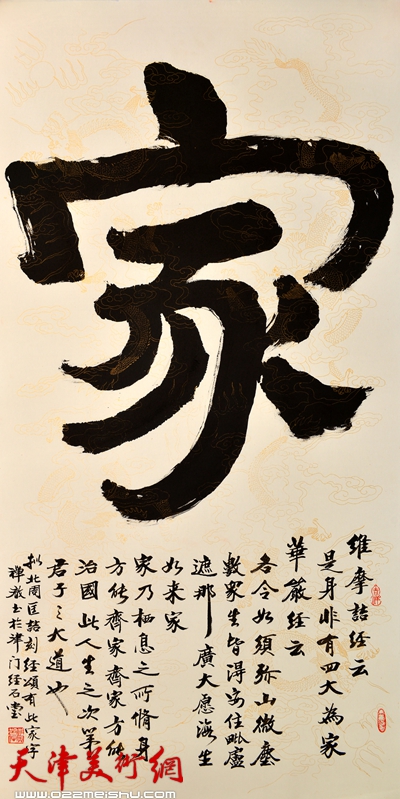 家
維摩詰经云
是身非有四大為家
華嚴经云
各令如須弥山微塵
數眾生皆得安住毗盧
遮那廣大愿海生
如来家
家乃棲息之所脩身
方能齊家齊家方能
治國此人生之次第
君子之大道也
拟北周匡喆刻经頌有此家字
禅巖书於津门经石堂
天津美術網
www.022meishu.com